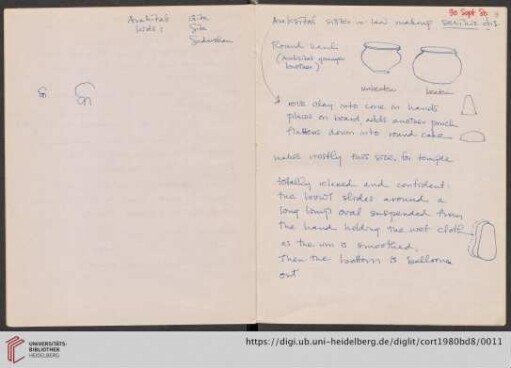 kids :
Gita
Sita
30 Sept 80
sister in law making
Round hand
younger
brother)
unbeaten
beaten
rolls clay into cone in hands
places on board, adds another pinch
flattens down into round cake
makes mostly this size, for temple
totally relaxed and confident.
the bowl slides around a
long limp oval suspended from
the hand holding the wet cloth
as the rim is smoothed.
Then the bottom is ballooned
out
UNIVERSITÄTS-
BIBLIOTHEK
HEIDELBERG
https://digi.ub.uni-heidelberg.de/diglit/cort1980bd8/0011